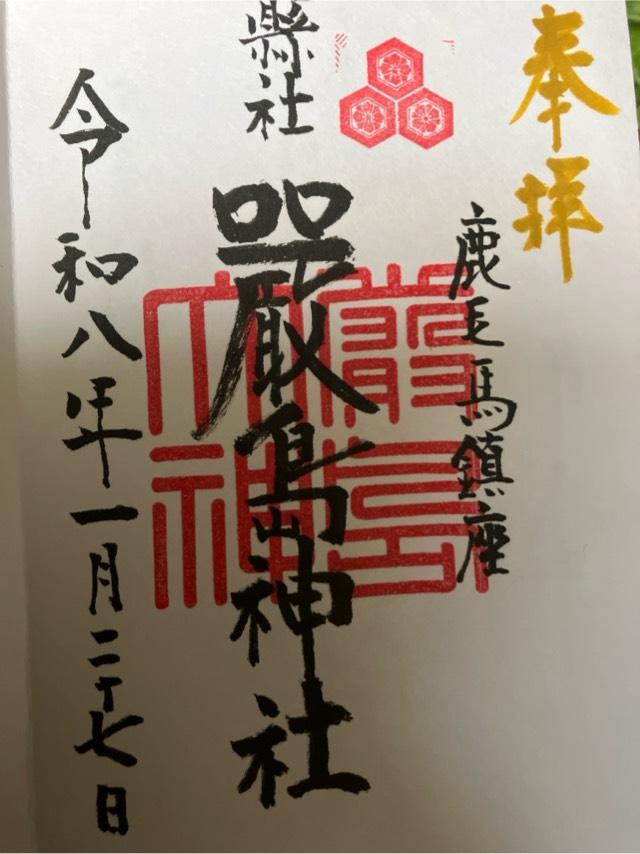 奉拝
鹿毛馬鎮座
縣社
嚴島神社
令和八年一月二十七日